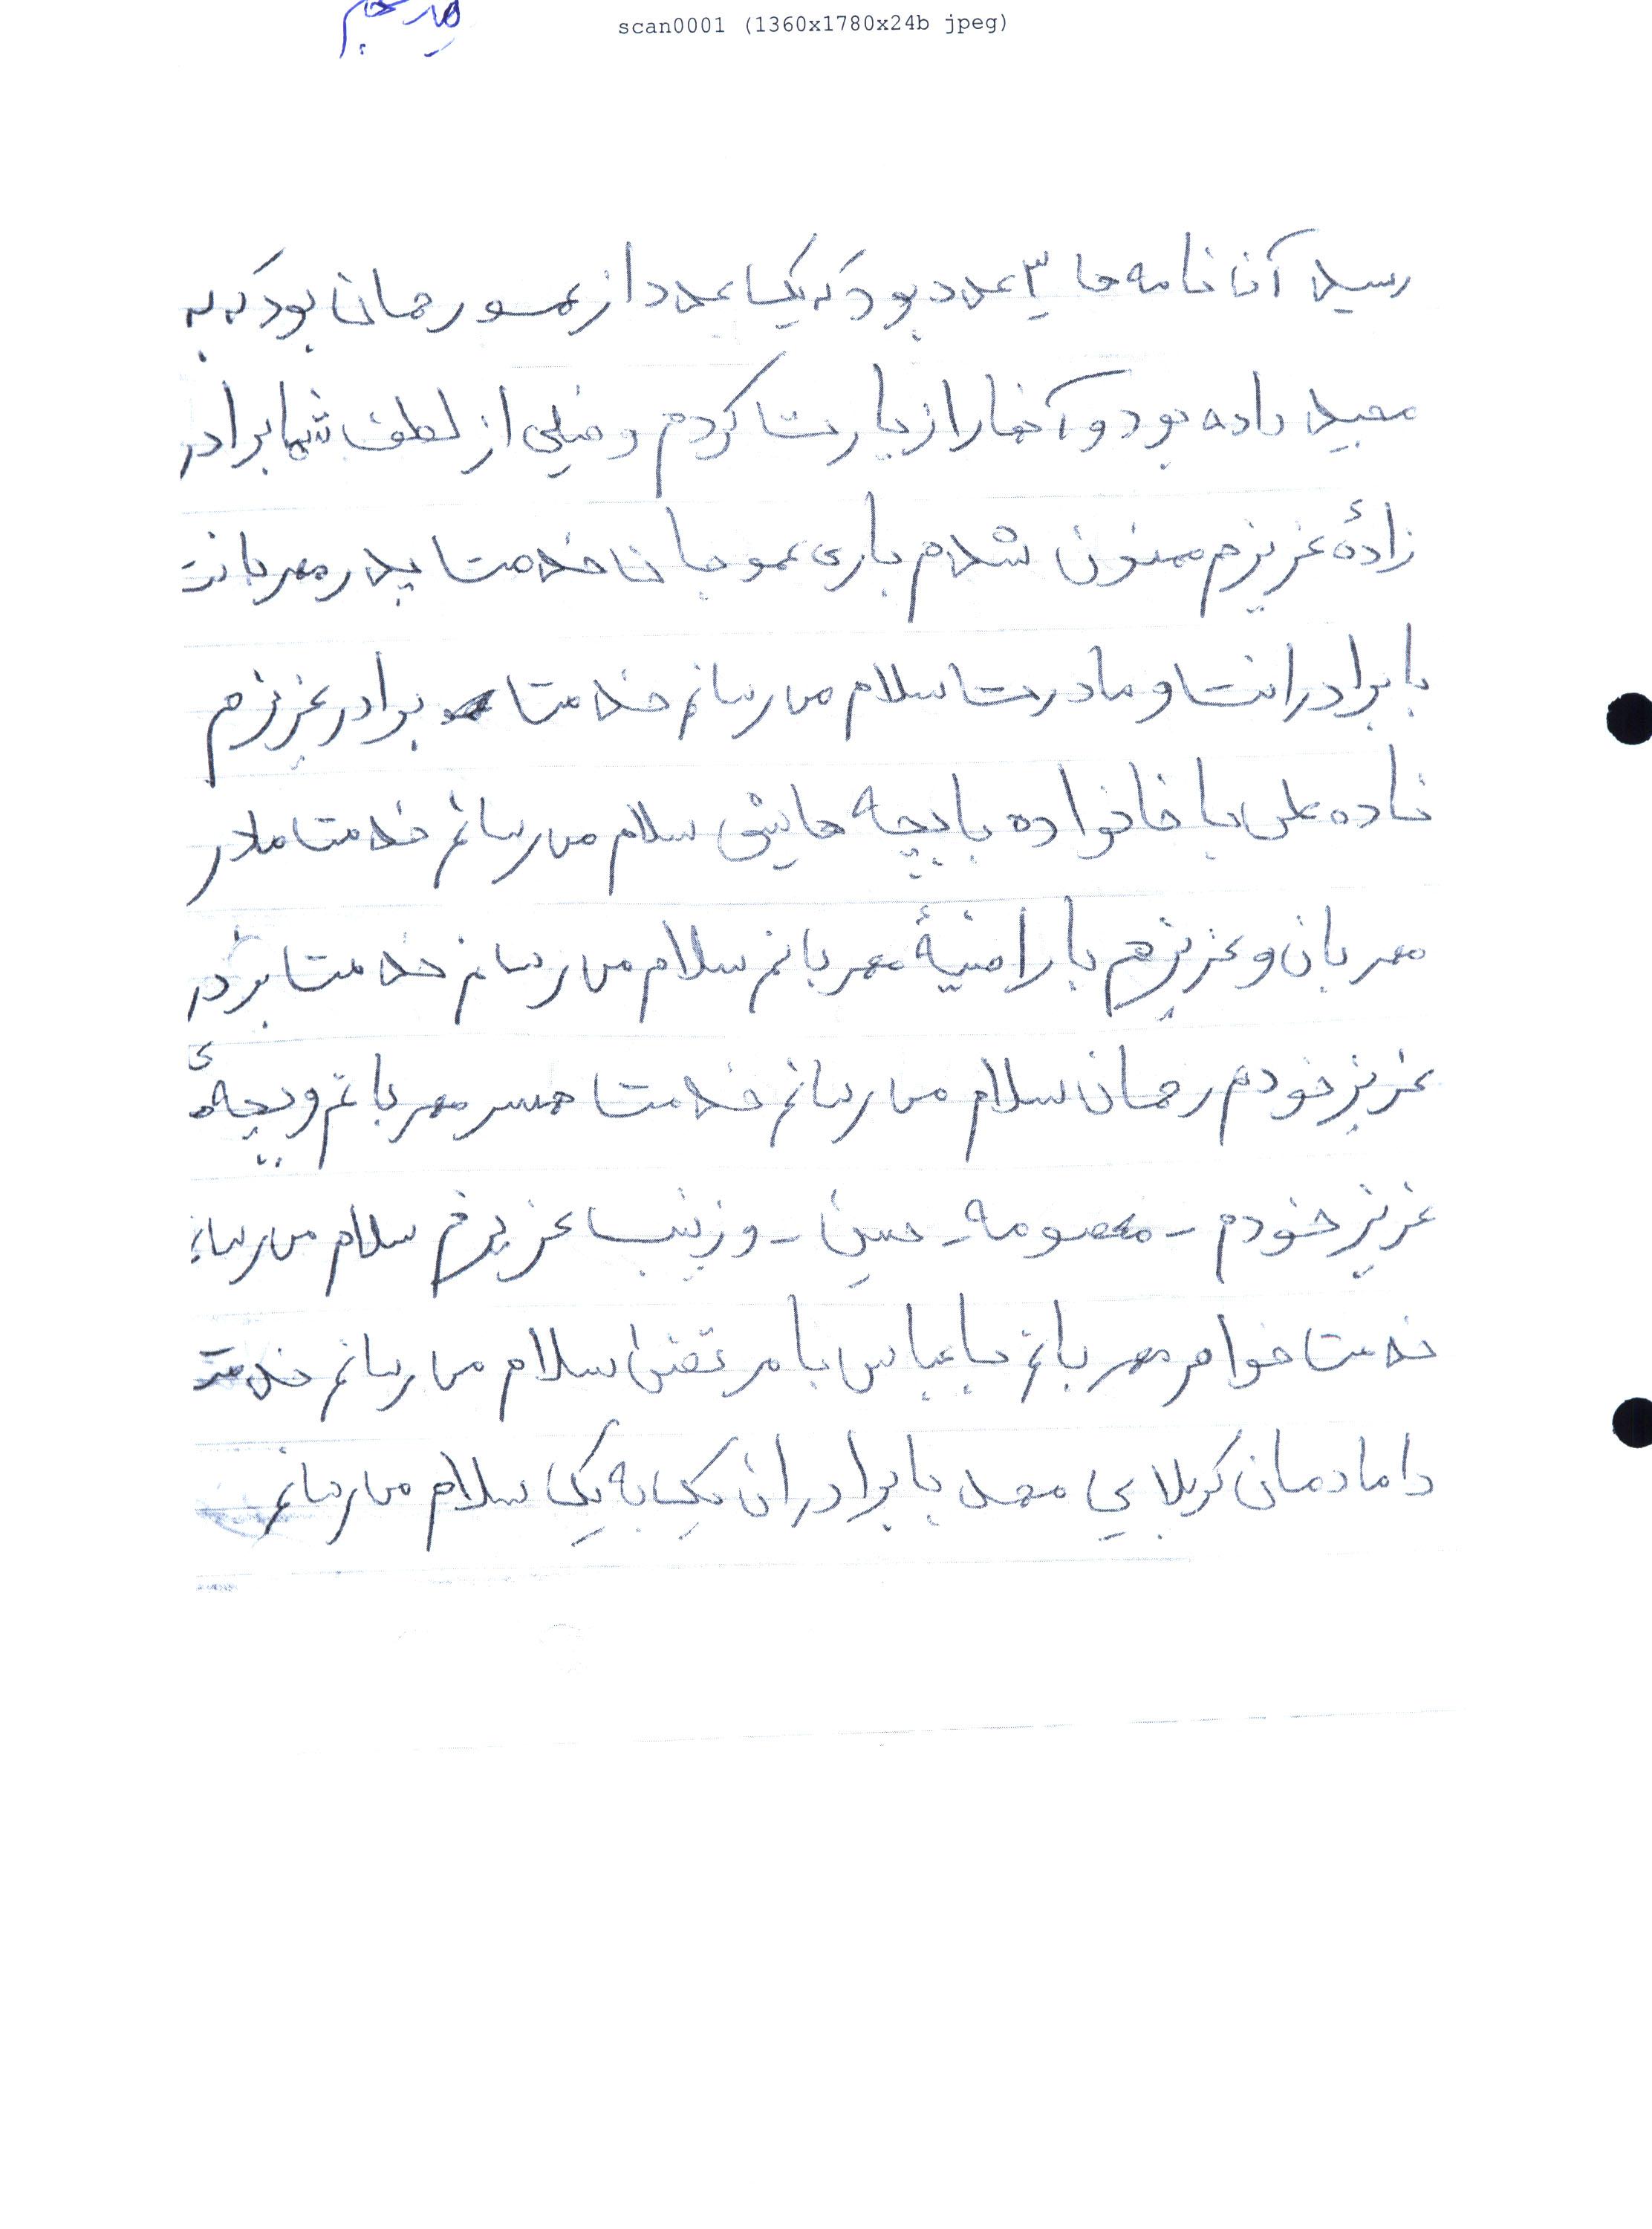 scan0001 (1360x1780x24b jpeg)
رسید آن نامه ها ۳ عدد بود که یک عدد از عمو رحمان بود که به
مجید داده بود و آنها را زیارت کردم و خیلی از لطف شما برادر
زادهٔ عزیزم ممنون شدم باری عمو جان خدمت پدر مهربانت
با برادرانت و مادرت سلام می رسانم خدمت برادر عزیزم
ناده علی با خانواده با بچه هایش سلام می رسانم خدمت مادر
مهربان و عزیزم با راضیهٔ مهربانم سلام می رسانم خدمت برادر
عزیز خودم رحمان سلام می رسانم خدمت همسر مهربانم و بچهٔ
عزیز خودم - معصومه - حسین - و زینب عزیزم سلام می رسانم
خدمت خواهر مهربانم با عباس با مرتضی سلام می رسانم خدمت
دامادمان کربلایی محمد با برادران یک به یک سلام می رسانم